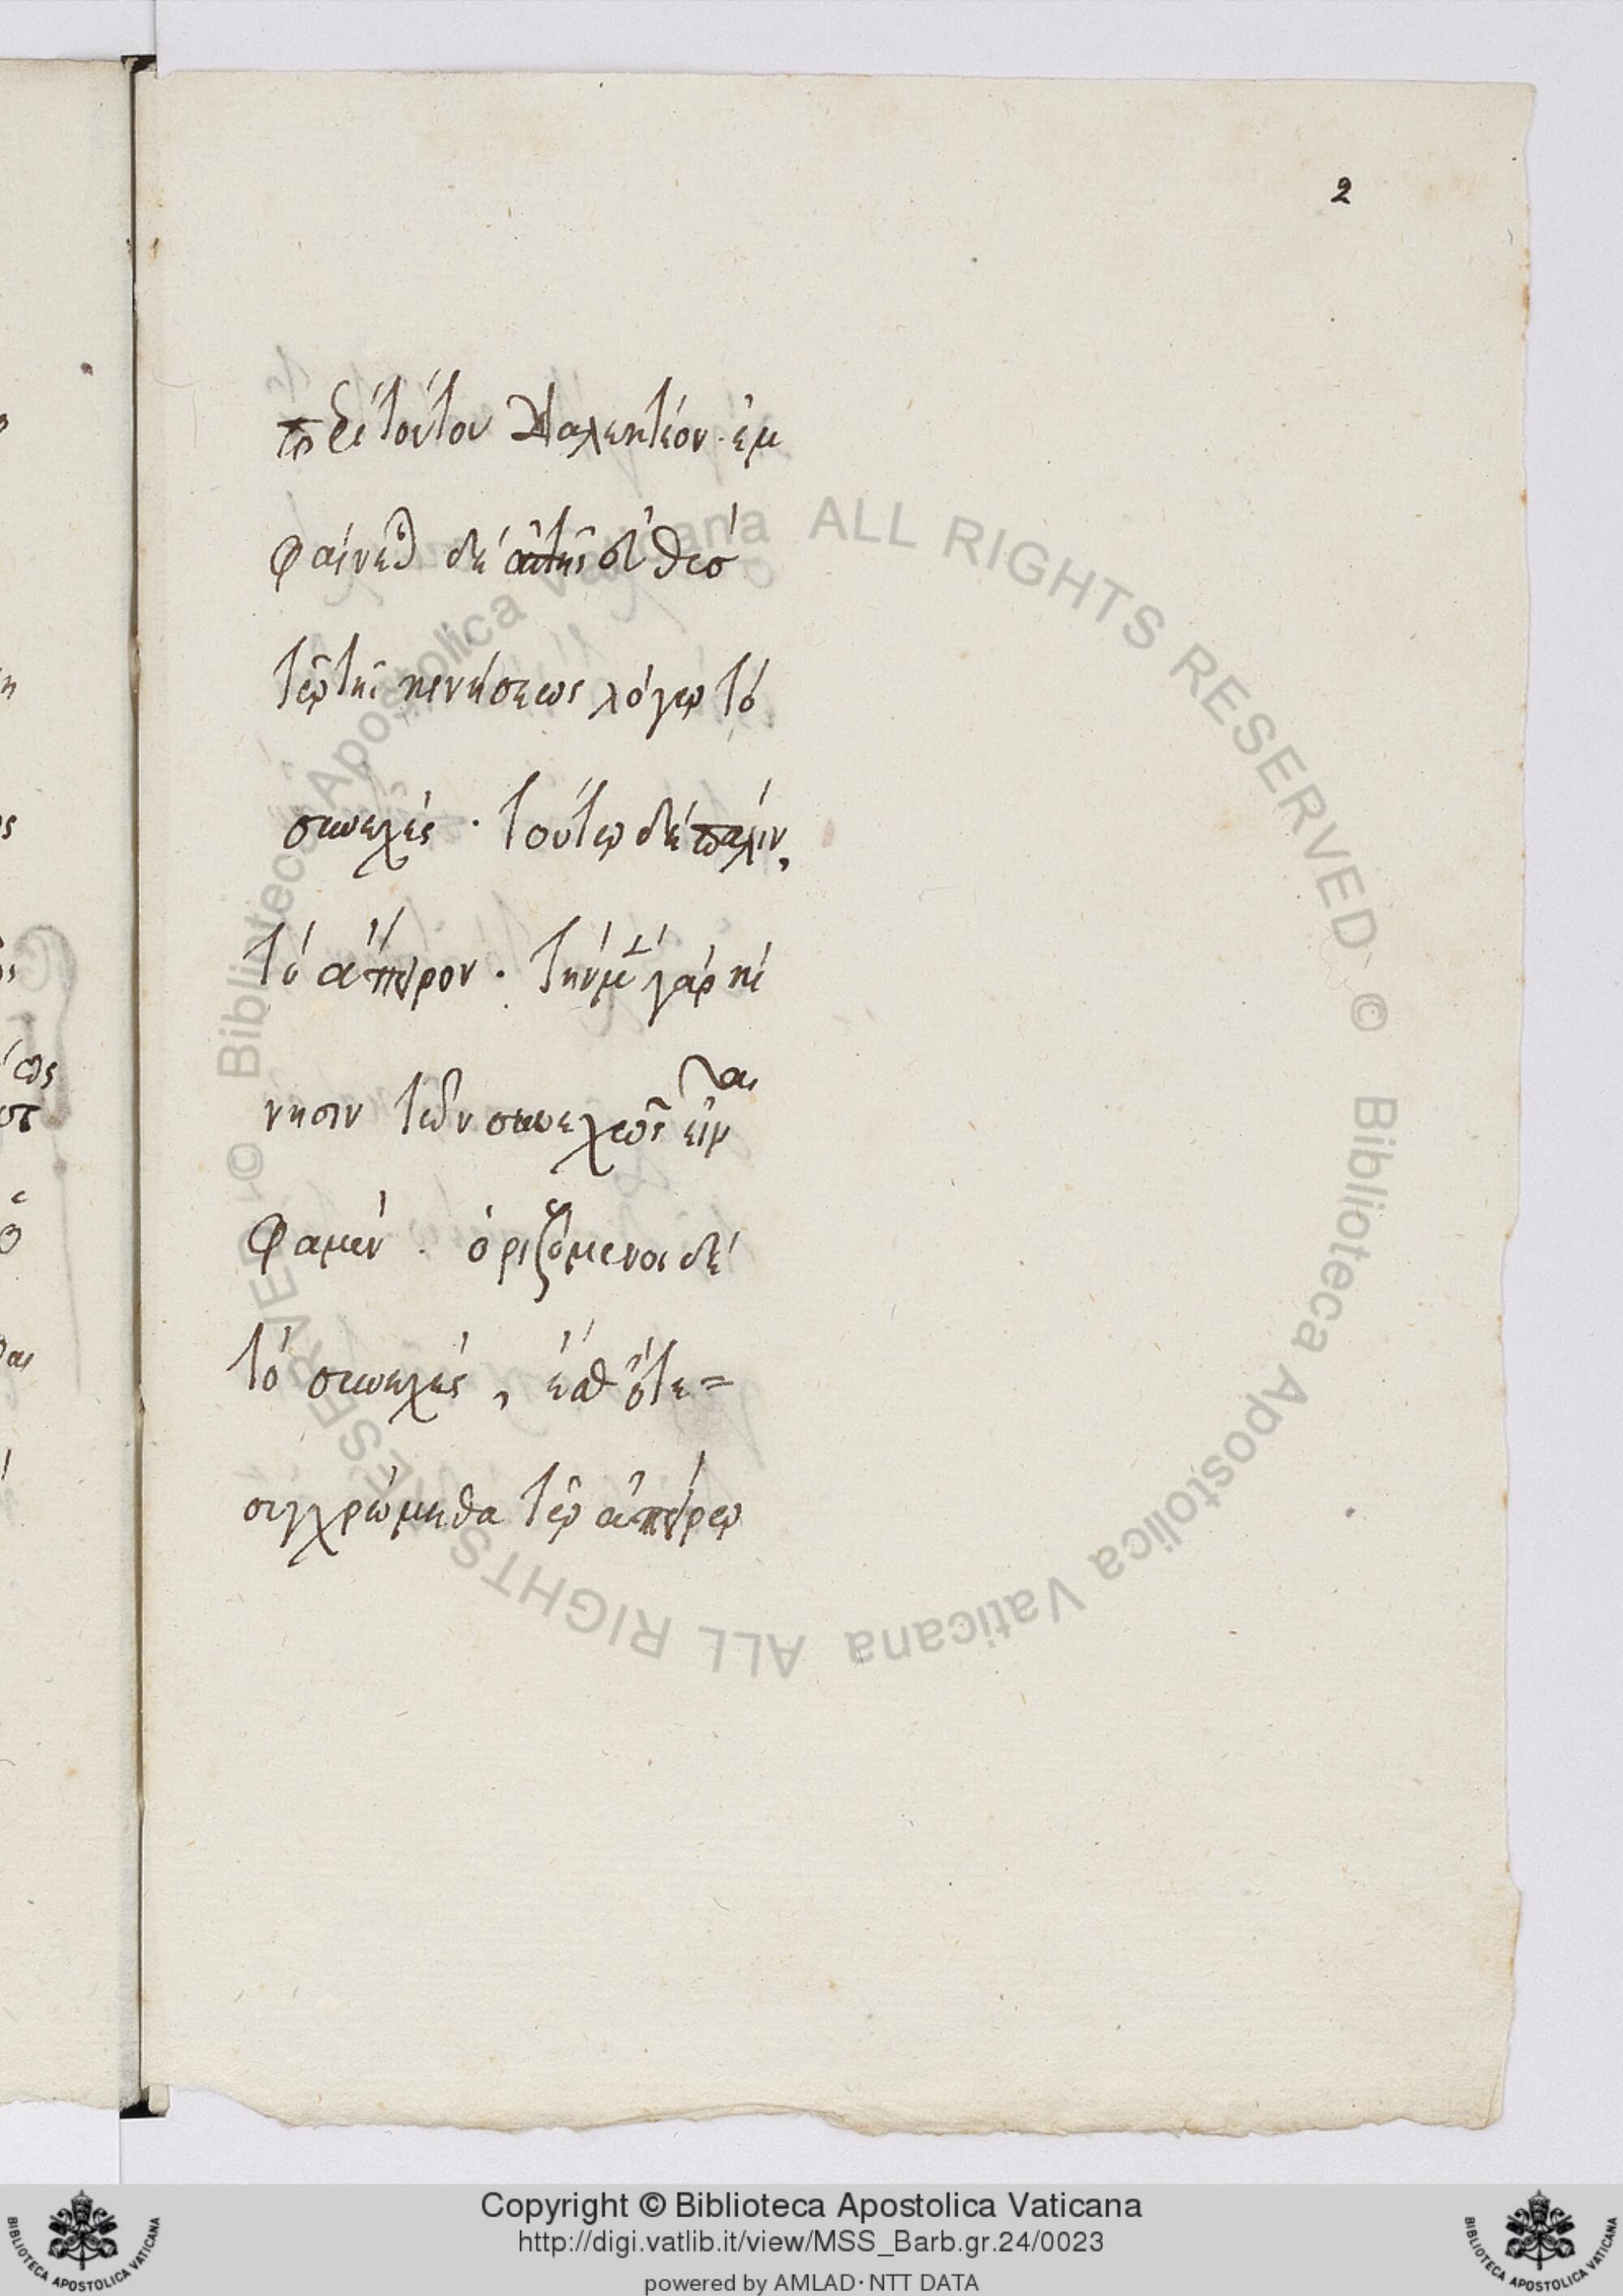 2
περὶ τούτου διαλεκτέον· ἐμ
φαίνεται δὲ
τῷ τῆς κινήσεως λόγῳ τό
συνεχές · τούτῳ δὲ πάλιν,
τό ἄπειρον · τήν μὲν γάρ κί
νησιν τῶν συνεχῶς εἶναι
φαμέν · ὁριζόμενοι δέ
τό συνεχές , ὅτε=
συγχρώμεθα τῷ ἀπείρῳ
© Biblioteca Apostolica Vaticana ALL RIGHTS RESERVED © Biblioteca Apostolica Vaticana ALL RIGHTS RESERVED
Copyright © Biblioteca Apostolica Vaticana
http://digi.vatlib.it/view/MSS_Barb.gr.24/0023
powered by AMLAD·NTT DATA
BIBLIOTECA APOSTOLICA VATICANA
BIBLIOTECA APOSTOLICA VATICANA